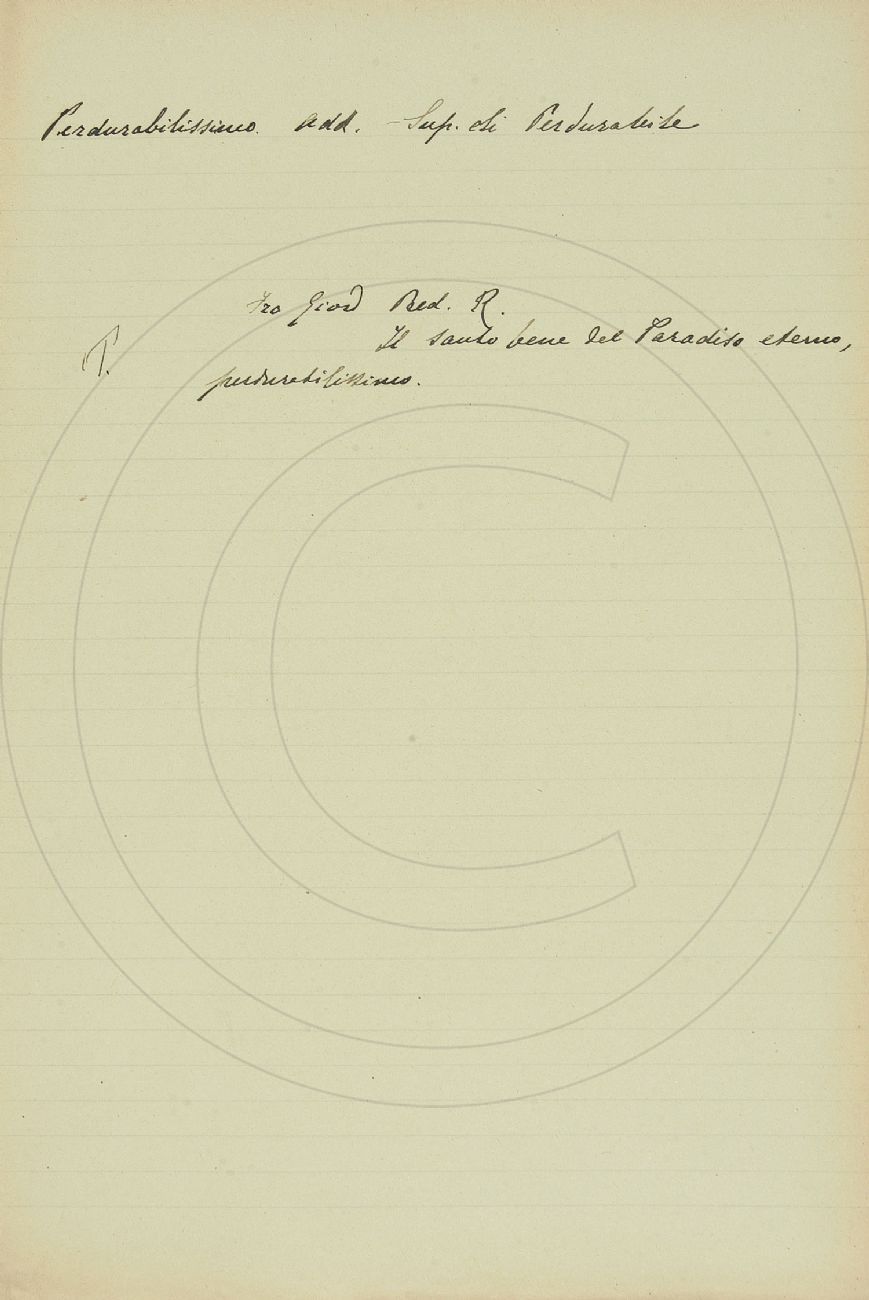 Perdurabilissimo. Add. - Sup. di Perdurabile
Fra Giord Pred. R.
P. Il santo bene del Paradiso eterno,
perdurabilissimo.